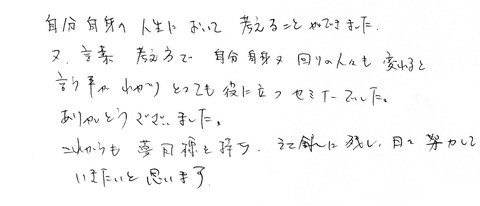 自分自身の人生において考えることができました。
又、言葉 考え方で 自分自身又回りの人々も変わると
言う事がわかりとっても役に立つセミナーでした。
ありがとうございました。
これからも夢目標を持ち、 に残し、日々努力して
いきたいと思います